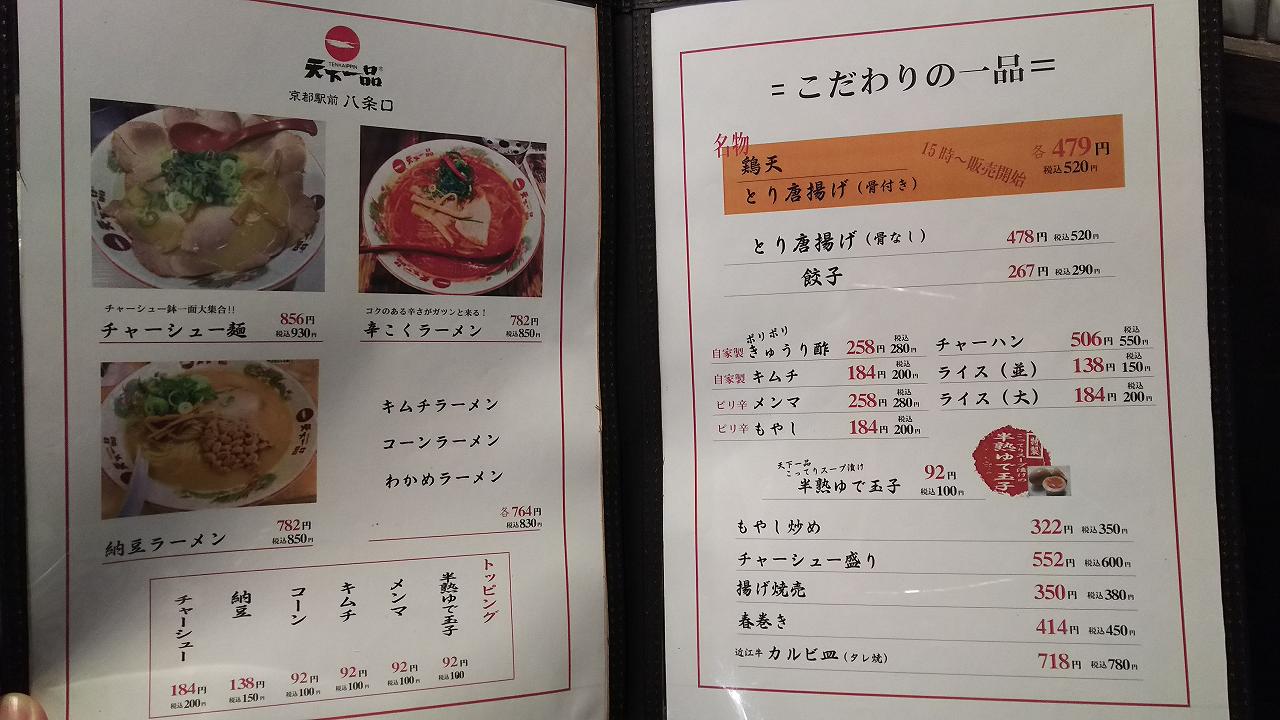 TENKAIPPIN
天下一品®
京都駅前 八条口
チャーシュー鉢一面大集合!!
チャーシュー麺 856円 税込930円
コクのある辛さがガツンと来る!
辛こくラーメン 782円 税込850円
納豆ラーメン 782円 税込850円
キムチラーメン
コーンラーメン
わかめラーメン
各764円
税込830円
トッピング
半熟ゆで玉子 92円 税込100
メンマ 92円 税込100円
キムチ 92円 税込100円
コーン 92円 税込100円
納豆 138円 税込150円
チャーシュー 184円 税込200円
=こだわりの一品=
名物
鶏天
とり唐揚げ(骨付き)
15時~販売開始
各479円
税込520円
とり唐揚げ(骨なし) 478円 税込520円
餃子 267円 税込290円
自家製 ポリポリきゅうり酢 258円 税込280円
自家製 キムチ 184円 税込200円
ピリ辛 メンマ 258円 税込280円
ピリ辛 もやし 184円 税込200円
チャーハン 506円 税込550円
ライス(並) 138円 税込150円
ライス(大) 184円 税込200円
天下一品
こってりスープ漬け
半熟ゆで玉子 92円 税込100円
こってりスープ漬けの
半熟ゆで玉子
もやし炒め 322円 税込350円
チャーシュー盛り 552円 税込600円
揚げ焼売 350円 税込380円
春巻き 414円 税込450円
近江牛 カルビ皿(タレ焼) 718円 税込780円